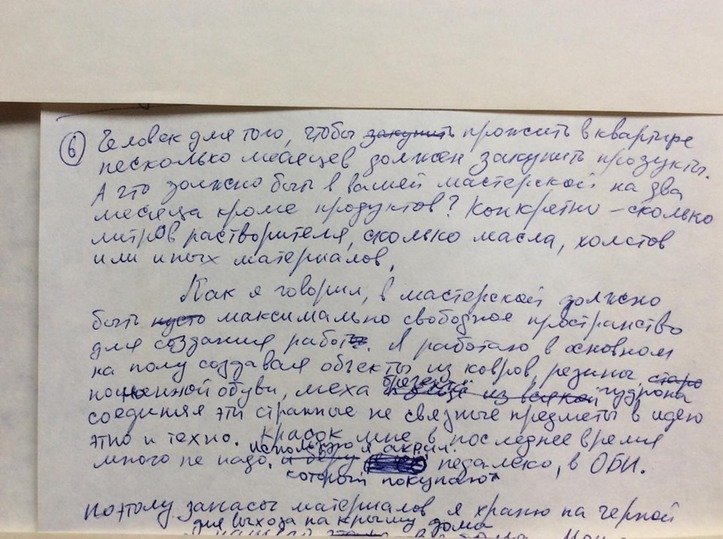 6 Человек для того, чтобы закупить прожить в квартире
несколько месяцев должен закупить продукты.
А что должно быть в вашей мастерской на два
месяца кроме продуктов? Конкретно – сколько
литров растворителя, сколько масла, холстов
или иных материалов.
Как я говорил, в мастерской должно
быть пусто максимально свободное пространство
для создания работ. Я работаю в основном
на полу создавая объекты из ковров, резины, старо
поношенной обуви, меха брезента из всякой гудрона
соединяя эти странные не связные предметы в идею
этно и техно. Красок мне в последнее время
использую акрил.
много не надо. я беру недалеко, в ОБИ.
который покупают
поэтому запасы материалов я храню на черной
для выхода на крышу дома